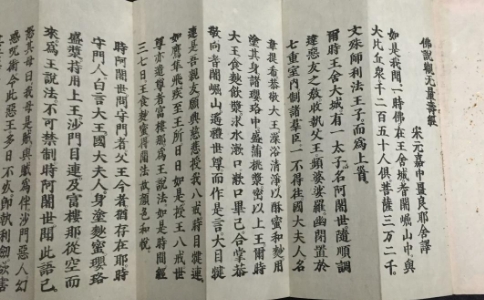 佛說觀无量壽經
宋元嘉中畺良耶舍譯
如是我聞一時佛在王舍城耆闍崛山中與
大比丘衆千二百五十人俱菩薩三万二千
文殊師利法王子而為上首
爾時王舍大城有一太子名阿闍世隨順調
達惡友之教收執父王頻婆娑羅幽閉置於
七重室內制諸羣臣一不得往國大夫人名
韋提希恭敬大王澡浴清淨以酥蜜和麨用
塗其身諸瓔珞中盛蒲桃漿密以上王爾時
大王食麨飲漿求水漱口漱口畢已合掌恭
敬向耆闍崛山遥禮世尊而作是言大目犍
連是吾親友願興慈悲授我八戒時目犍連
如鷹隼飛疾至王所日日如是授王八戒世
尊亦遣尊者富樓那為王說法如是時間經
三七日王食麨蜜得聞法故顏色和悅
時阿闍世問守門者父王今者猶存在耶時
守門人白言大王國大夫人身塗麨蜜瓔珞
盛漿持用上王沙門目連及富樓那從空而
來為王說法不可禁制時阿闍世聞此語已
怒其母曰我母是賊與賊為伴沙門惡人幻
惑呪術令此惡王多日不死即執利劒欲害